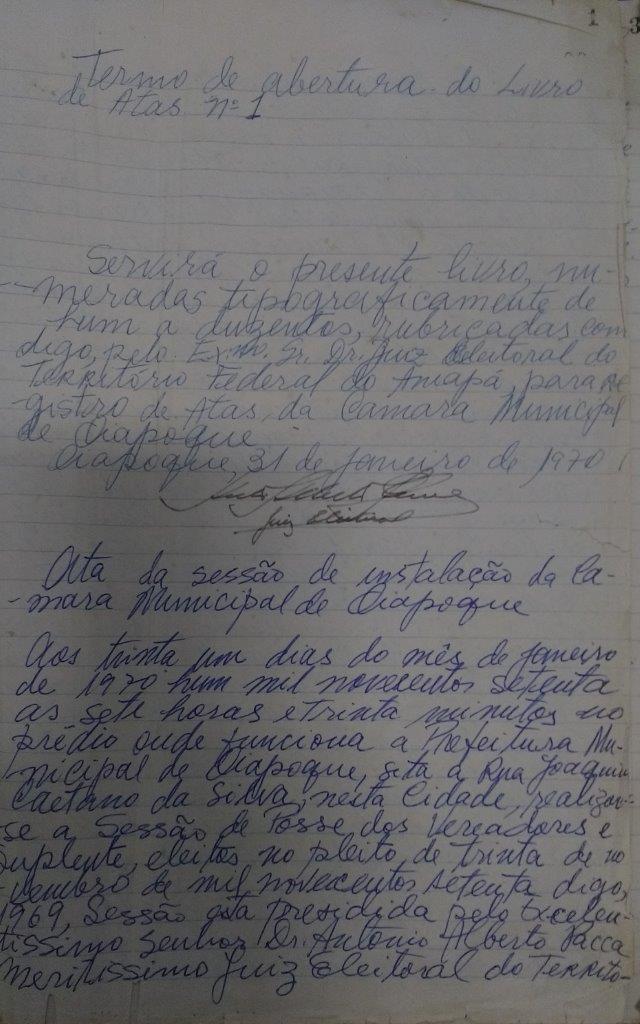 1
3
Termo de abertura do Livro
de Atas nº 1
Servirá o presente livro, nu-
meradas tipograficamente de
hum a duzentos, rubricadas com
digo, pelo Exmo. Sr. Dr. Juiz Eleitoral do
Território Federal do Amapá, para re
gistro de Atas, da Camara Municipal
de Oiapoque
Oiapoque 31 de janeiro de 1970
Juiz Eleitoral
Ata da sessão de instalação da Ca-
mara Municipal de Oiapoque
Aos trinta um dias do mês de janeiro
de 1970 hum mil novecentos setenta
as sete horas e trinta minutos no
prédio onde funciona a Prefeitura Mu-
nicipal de Oiapoque, sita a Rua Joaquim
Caetano da Silva, nesta Cidade, realizou-
se a Sessão de Posse dos Vereadores e
suplente, eleitos no pleito de trinta de no
vembro de mil novexentos setenta digo,
1969, Sessão esta presidida pelo Excelen-
tissimo Senhor Dr. Antonio Alberto Pacca
Meritissimo Juiz Eleitoral do Territó-